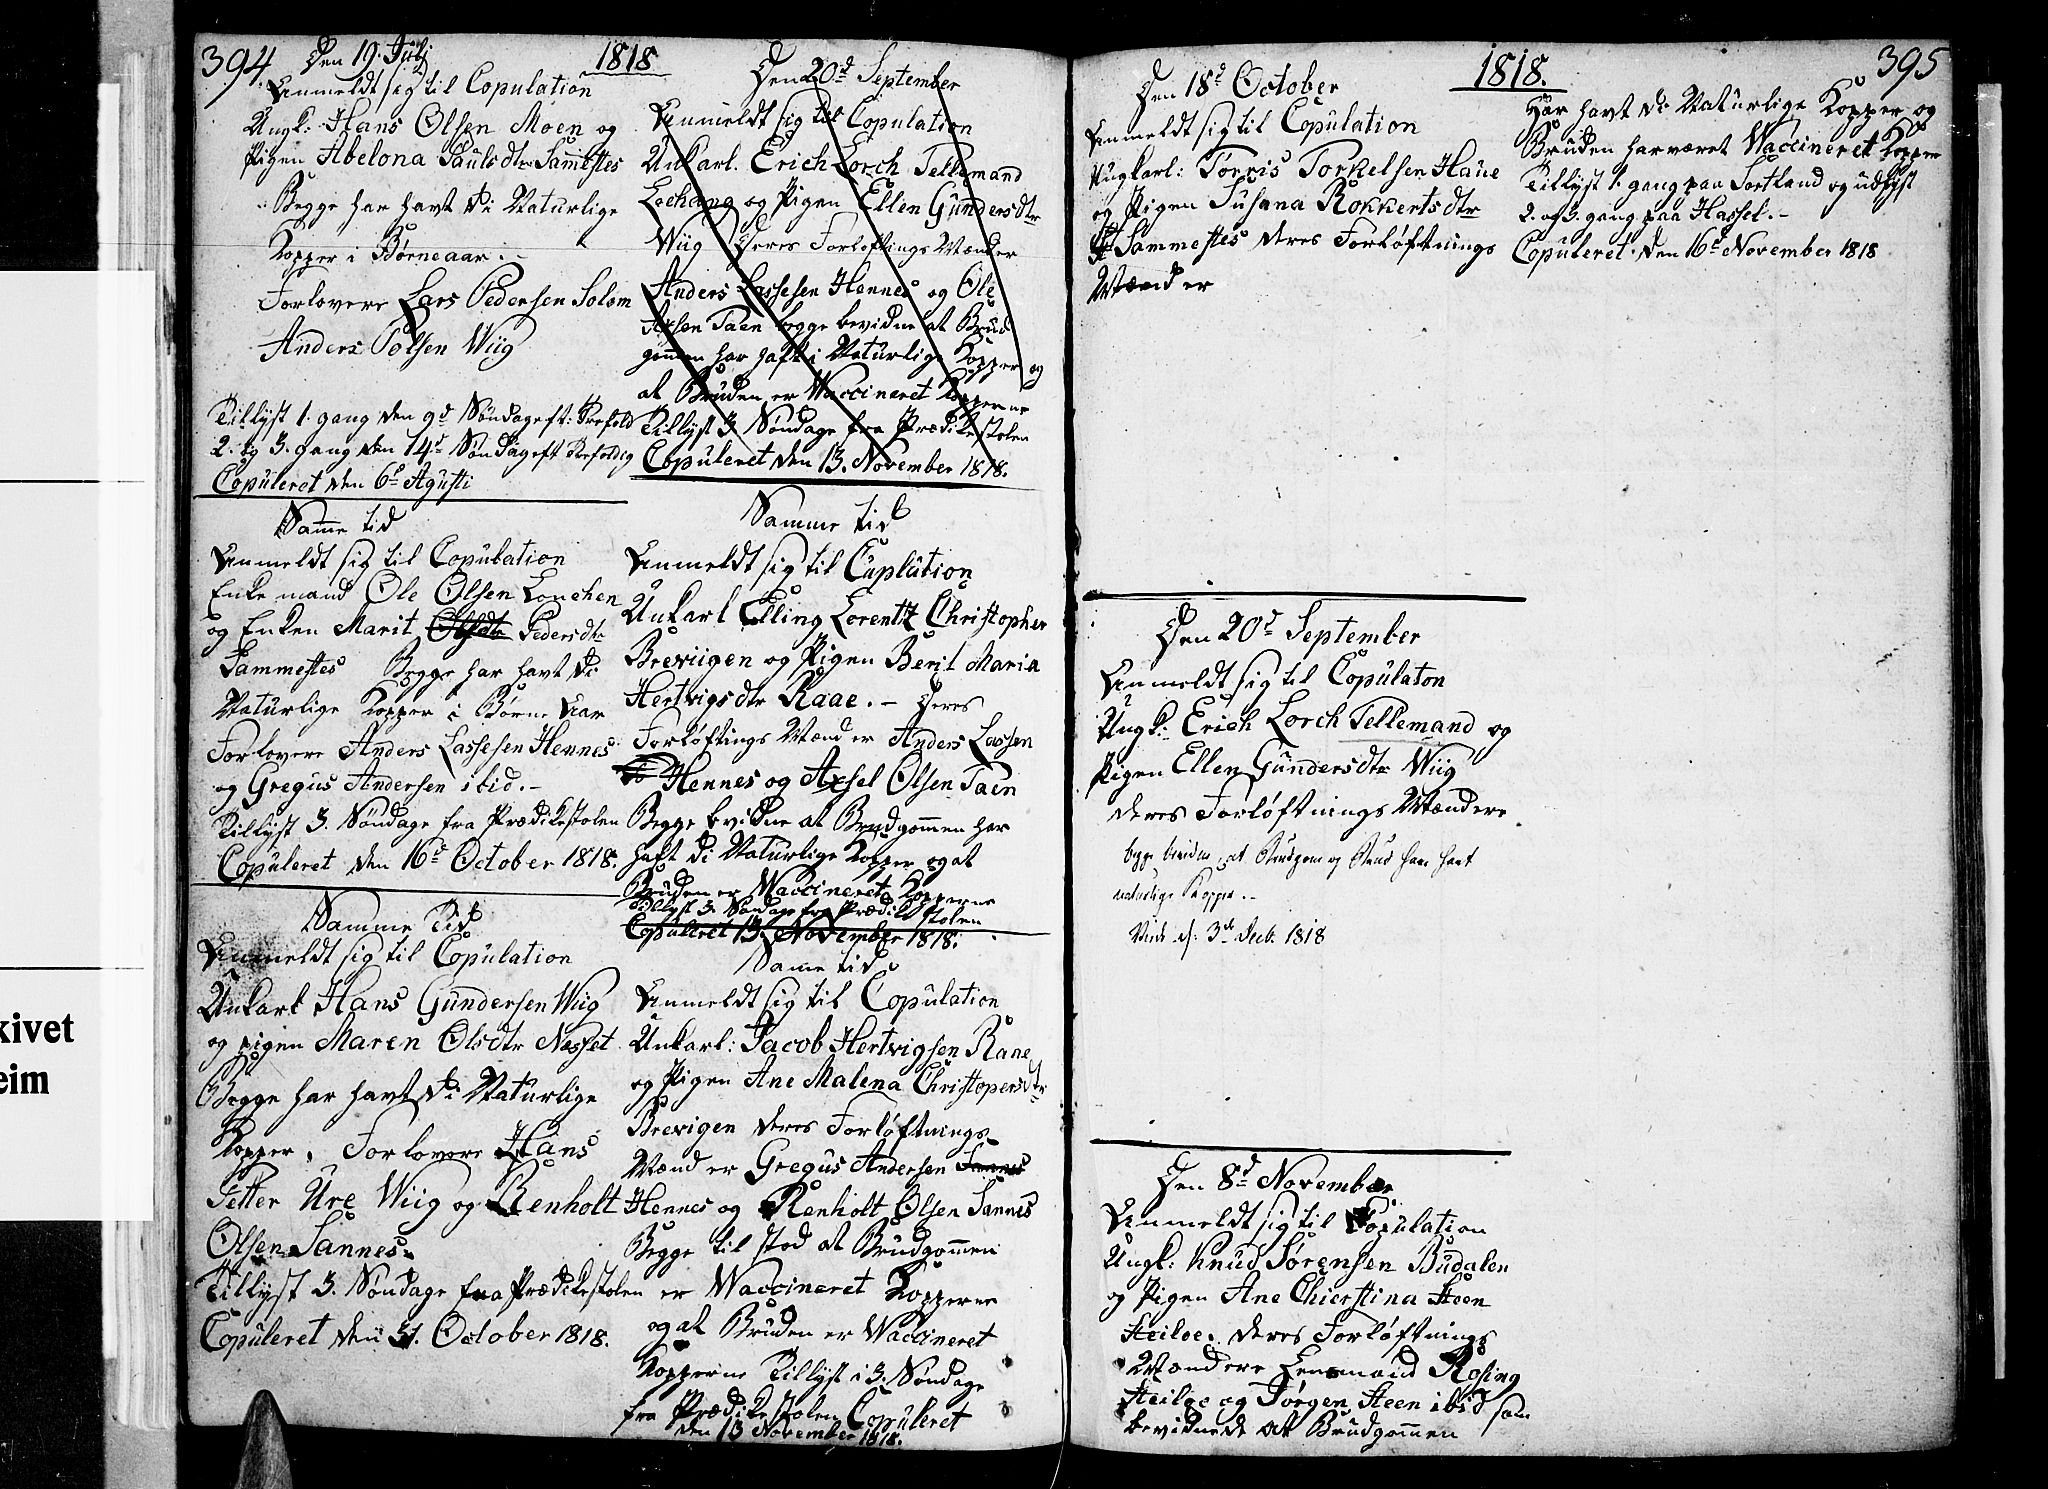 394
1818
Den 19. Julj
Anmeldt sig til Copulation
Ungk: Hans Olsen Moen og
Pigen Abelona Paulsdtr Sammestes
Begge har havt di Naturlige
Kopper i Børneaar.-
Forlovere Lars Pedersen Solom
Anders Polsen Wiig
Tillyst 1. gang den 9d Søndag eft: Trefold
2. og 3. gang den 14d Søndag eft Trefoldig
Copuleret den 6d Agusti
Samme tid
Anmeldt sig til Copulation
Enke mand Ole Olsen Lonchen
og Enken Marit Olsdtr Pedersdtr
Sammestes Begge har havt di
Naturlige Kopper i Børne Aar
Forlovere Anders Lassesen Hennes
og Gregus Andersen ibid.-
Tillyst 3. Søndage fra Prædikestolen
Copuleret den 16d October 1818.
Samme Tid
Anmeldt sig til Copulation
Unkarl Hans Gundersen Wiig
og pigen Maren Olsdtr Næsset
Begge har havt di Naturlige
Kopper. Forlovere Hans
Petter Ure Wiig og Renholt
Olsen Sannes.
Tillyst 3. Søndage fra Prædikestolen
Copuleret den 31. October 1818.
Den 20d September
Anmeldt sig til Copulation
Unkarl. Erich Lorch Tellemand
og Pigen Ellen Gundersdtr
Wiig Deres Forløftings Mænd er
Anders Lassesen Hennes og Ole
Axsen Taen begge bevidne at Brud
gommen har haft i Naturlige Kopper og
at Bruden er Waccineret Kopperne
Tillyst 3 Søndage fra Prædikestolen
Copuleret den 13. November 1818.
Samme tid
Anmeldt sig til Cuplution
Unkarl Elling Lorentz Christopher
Breviigen og Pigen Berit Maria
Hertvigsdtr Raae. - Deres
Forløftings Mænd er Anders Lassen
Hennes og Axsel Olsen Taen
Begge bevidne at Brudgommen har
haft di Naturlige Kopper og at
Bruden er Waccineret Kopperne
Tillyst 3. Søndage fra Prædikestolen
Copuleret 13. November 1818.
Same tid
Anmeldt sig til Copulation
Unkarl: Jacob Hertvigsen Raae
og Pigen Ane Malena Christopersdtr
Brevigen deres Forløftnings
Mænd er Gregus Andersen Sannes
Hennes og Renholt Olsen Sannes
Begge til stod at Brudgommen
er Waccineret Kopperne
og at Bruden er Waccineret
Kopperne Tillyst i 3. Søndage
fra Prædikestolen Copuleret
den 13 November 1818.
1818.
395
Den 18d October
Anmeldt sig til Copulation
Ungkarl: Torris Torkelsen Haue
og Pigen Susana Rokkertsdtr
Sammestes deres Forløftnings
Mænd er
Den 20d September
Anmeldt sig til Copulaton
Ungk: Erich Lorch Tellemand og
Pigen Ellen Gundersdtr Wiig
deres Forløftnings Mændere
begge bevidne, at Brudgom og Brud have havt
naturlige Kopper.-
Viede d: 3de Decb. 1818
Den 8d November
Anmeldt sig til Copulation
Ungk: Knud Sørensen Budalen
og Pigen Ane Chierstina Steen
Steiloe. deres Forløftnings
Mændere Lensmand Rosing
Steiloe og Jørgen Steen ibid som
bevidnede at Brudgommen
Har havt di Naturlige Kopper og
Bruden har været Waccineret Kopper
Tillyst 1. gang paa Sortland og udlyst
2. og 3. gang paa Hassel.-
Copuleret den 16d November 1818
kivet
eim